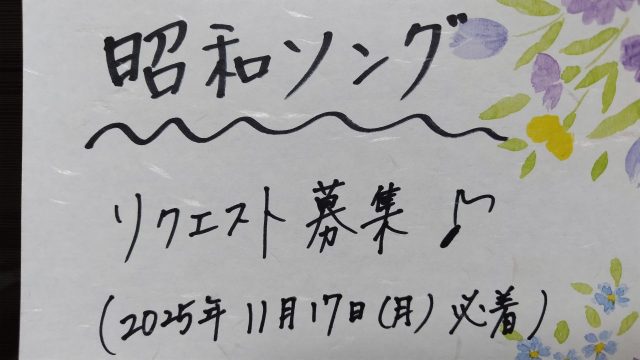 昭和ソング
リクエスト募集♪
(2025年11月17日(月)必着)